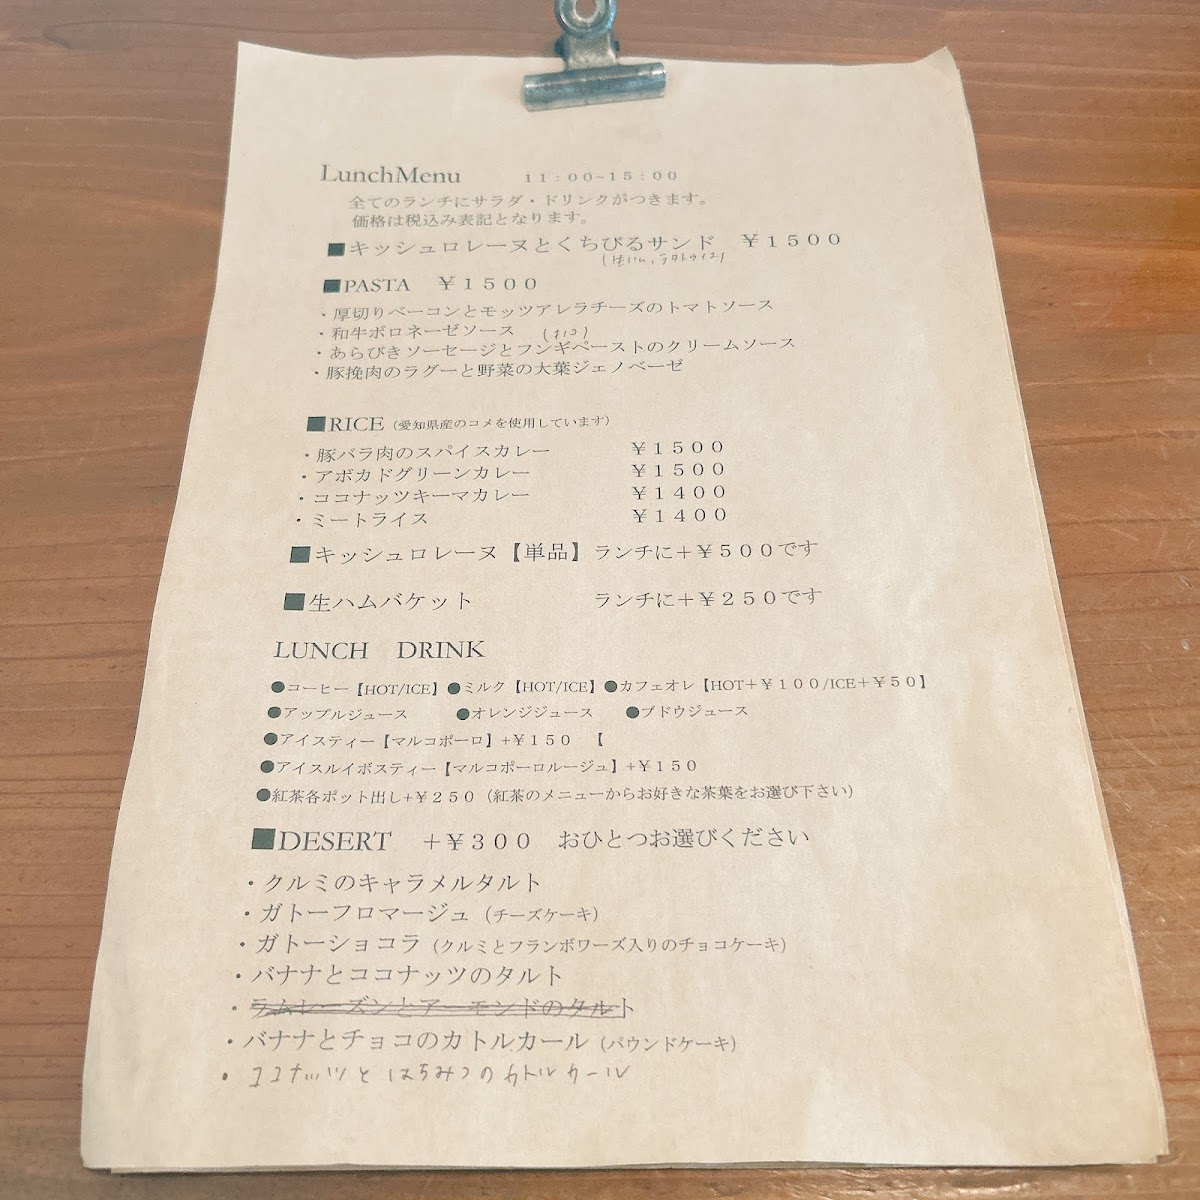 LunchMenu 11:00~15:00
全てのランチにサラダ・ドリンクがつきます。
価格は税込み表記となります。
■キッシュロレーヌとくちびるサンド ¥1500
■PASTA ¥1500
・厚切りベーコンとモッツアレラチーズのトマトソース
・和牛ボロネーゼソース
・あらびきソーセージとフンギペーストのクリームソース
・豚挽肉のラグーと野菜の大葉ジェノベーゼ
■RICE（愛知県産のコメを使用しています）
・豚バラ肉のスパイスカレー ¥1500
・アボカドグリーンカレー ¥1500
・ココナッツキーマカレー ¥1400
・ミートライス ¥1400
■キッシュロレーヌ【単品】 ランチに＋¥500です
■生ハムバケット ランチに＋¥250です
LUNCH DRINK
●コーヒー【HOT/ICE】 ●ミルク【HOT/ICE】 ●カフェオレ【HOT＋¥100/ICE＋¥50】
●アップルジュース ●オレンジジュース ●ブドウジュース
●アイスティー【マルコポーロ】+¥150 【
●アイスルイボスティー【マルコポーロルージュ】+¥150
●紅茶各ポット出し+¥250（紅茶のメニューからお好きな茶葉をお選び下さい）
■DESERT ＋¥300 おひとつお選びください
・クルミのキャラメルタルト
・ガトーフロマージュ（チーズケーキ）
・ガトーショコラ（クルミとフランボワーズ入りのチョコケーキ）
・バナナとココナッツのタルト
・ラムレーズンとアーモンドのタルト
・バナナとチョコのカトルカール（パウンドケーキ）
・ココナッツとはちみつのカトルカール